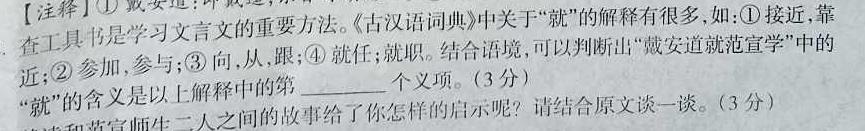 【注释】①戴安道:即戴逵,
查工具书是学习文言文的重要方法。《古汉语词典》中关于“就”的解释有很多,如:①接近,靠
近;②参加,参与;③向,从,跟;④就任;就职。结合语境,可以判断出“戴安道就范宣学”中的
“就”的含义是以上解释中的第________个义项。(3分)
和范宣师生二人之间的故事给了你怎样的启示呢?请结合原文谈一谈。(3分)